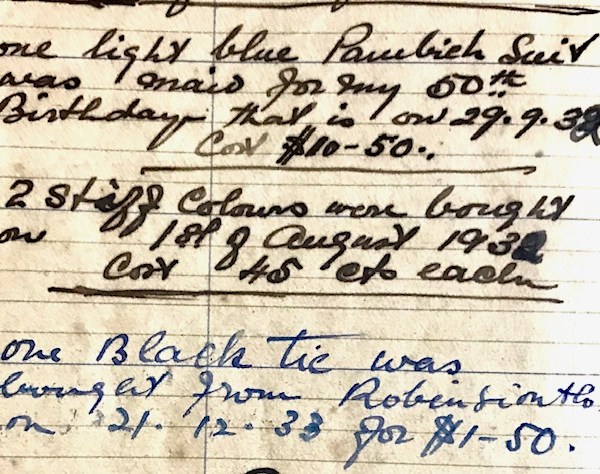 one light blue Pambich Suit
was maid for my 50th
Birthday that is on 29.9.32
Cost $10-50..
2 Stiff Colours were bought
on 1st of August 1932
Cost 45 cts each
one Black tie was
bought from Robinsion &Co
on 21. 12. 33 for $1-50.